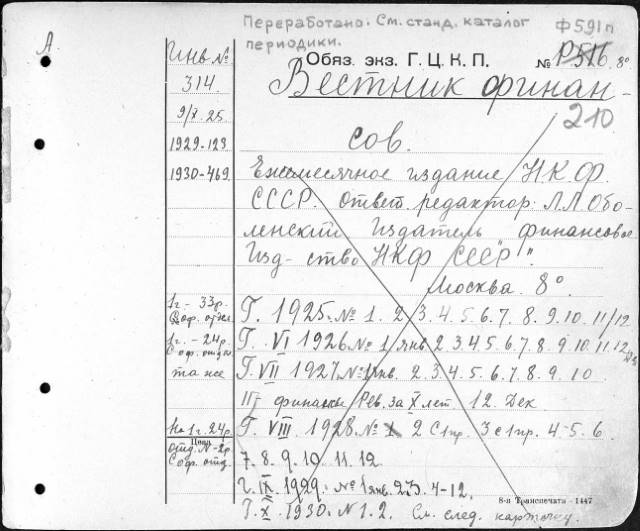 Переработано. См. станд. каталог
периодики.
Ф591п
А
Обяз. экз. Г. Ц. К. П. № Р516 8°
Вестник финан-
210
сов.
Инв. №
314
9/X 25
1929-123
1930-469
Ежемесячное издание НКФ.
СССР. Ответ. редактор: Л Л Обо-
ленский Издатель финансовое
Изд-ство НКФ СССР".
Москва. 8°
1 г - 33 р.
Г. 1925. № 1. 2. 3. 4. 5. 6. 7. 8. 9. 10. 11/12
1 г. - 24 р.
Г. VI 1926 № 1/янв 2. 3. 4. 5. 6. 7. 8. 9. 10. 11. 12
та же
Г. VII 1927. № 1 янв. 2. 3. 4. 5. 6. 7. 8. 9. 10
финансы Рев. за X лет. 12. Дек
На 1 г. 24 р.
Цена
Г. VIII. 1928. № 1 2 С 1 пр. 3 с 1 пр. 4-5. 6.
7. 8. 9. 10. 11. 12.
г. IX. 1929. № 1 янв. 2. 3. 4-12.
8-я Транспечать - 1447
Г. X. 1930. № 1. 2. См. след. карточку.